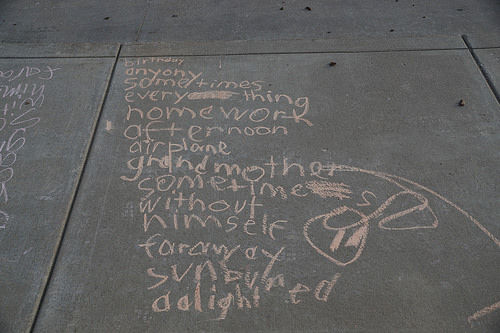 birthday
anyony
sometimes
every thing
homework
afternoon
airplane
grandmother
sometime
without
himself
faraway
sunburned
adlight